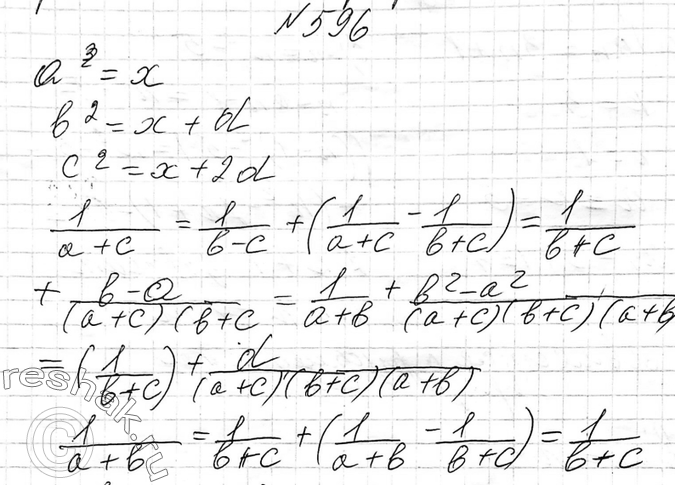 №596
a² = x
b² = x + d
c² = x + 2d
1/(a+c) = 1/(b-c) + (1/(a+c) - 1/(b+c)) = 1/(b+c)
+ (b-a)/((a+c)(b+c) = 1/(a+b) + (b²-a²)/((a+c)(b+c)(a+b
= (1/(b+c)) + d/((a+c)(b+c)(a+b))
1/(a+b) = 1/(b+c) + (1/(a+b) - 1/(b+c)) = 1/(b+c)
reshak.ru